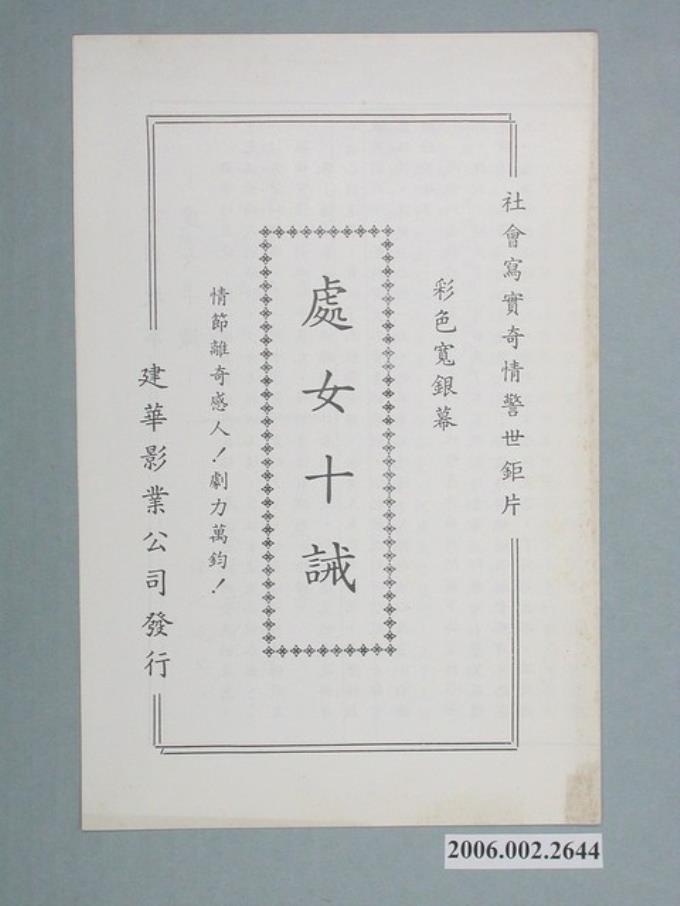 社會寫實奇情警世鉅片
彩色寬銀幕
處女十誡
情節離奇感人！劇力萬鈞！
建華影業公司發行
2006.002.2644